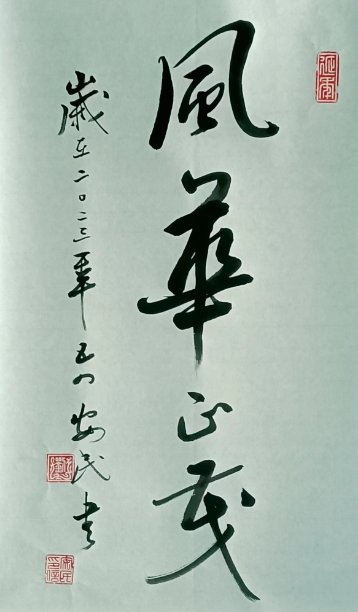 風華正茂
歲在二〇二三年五月安民书